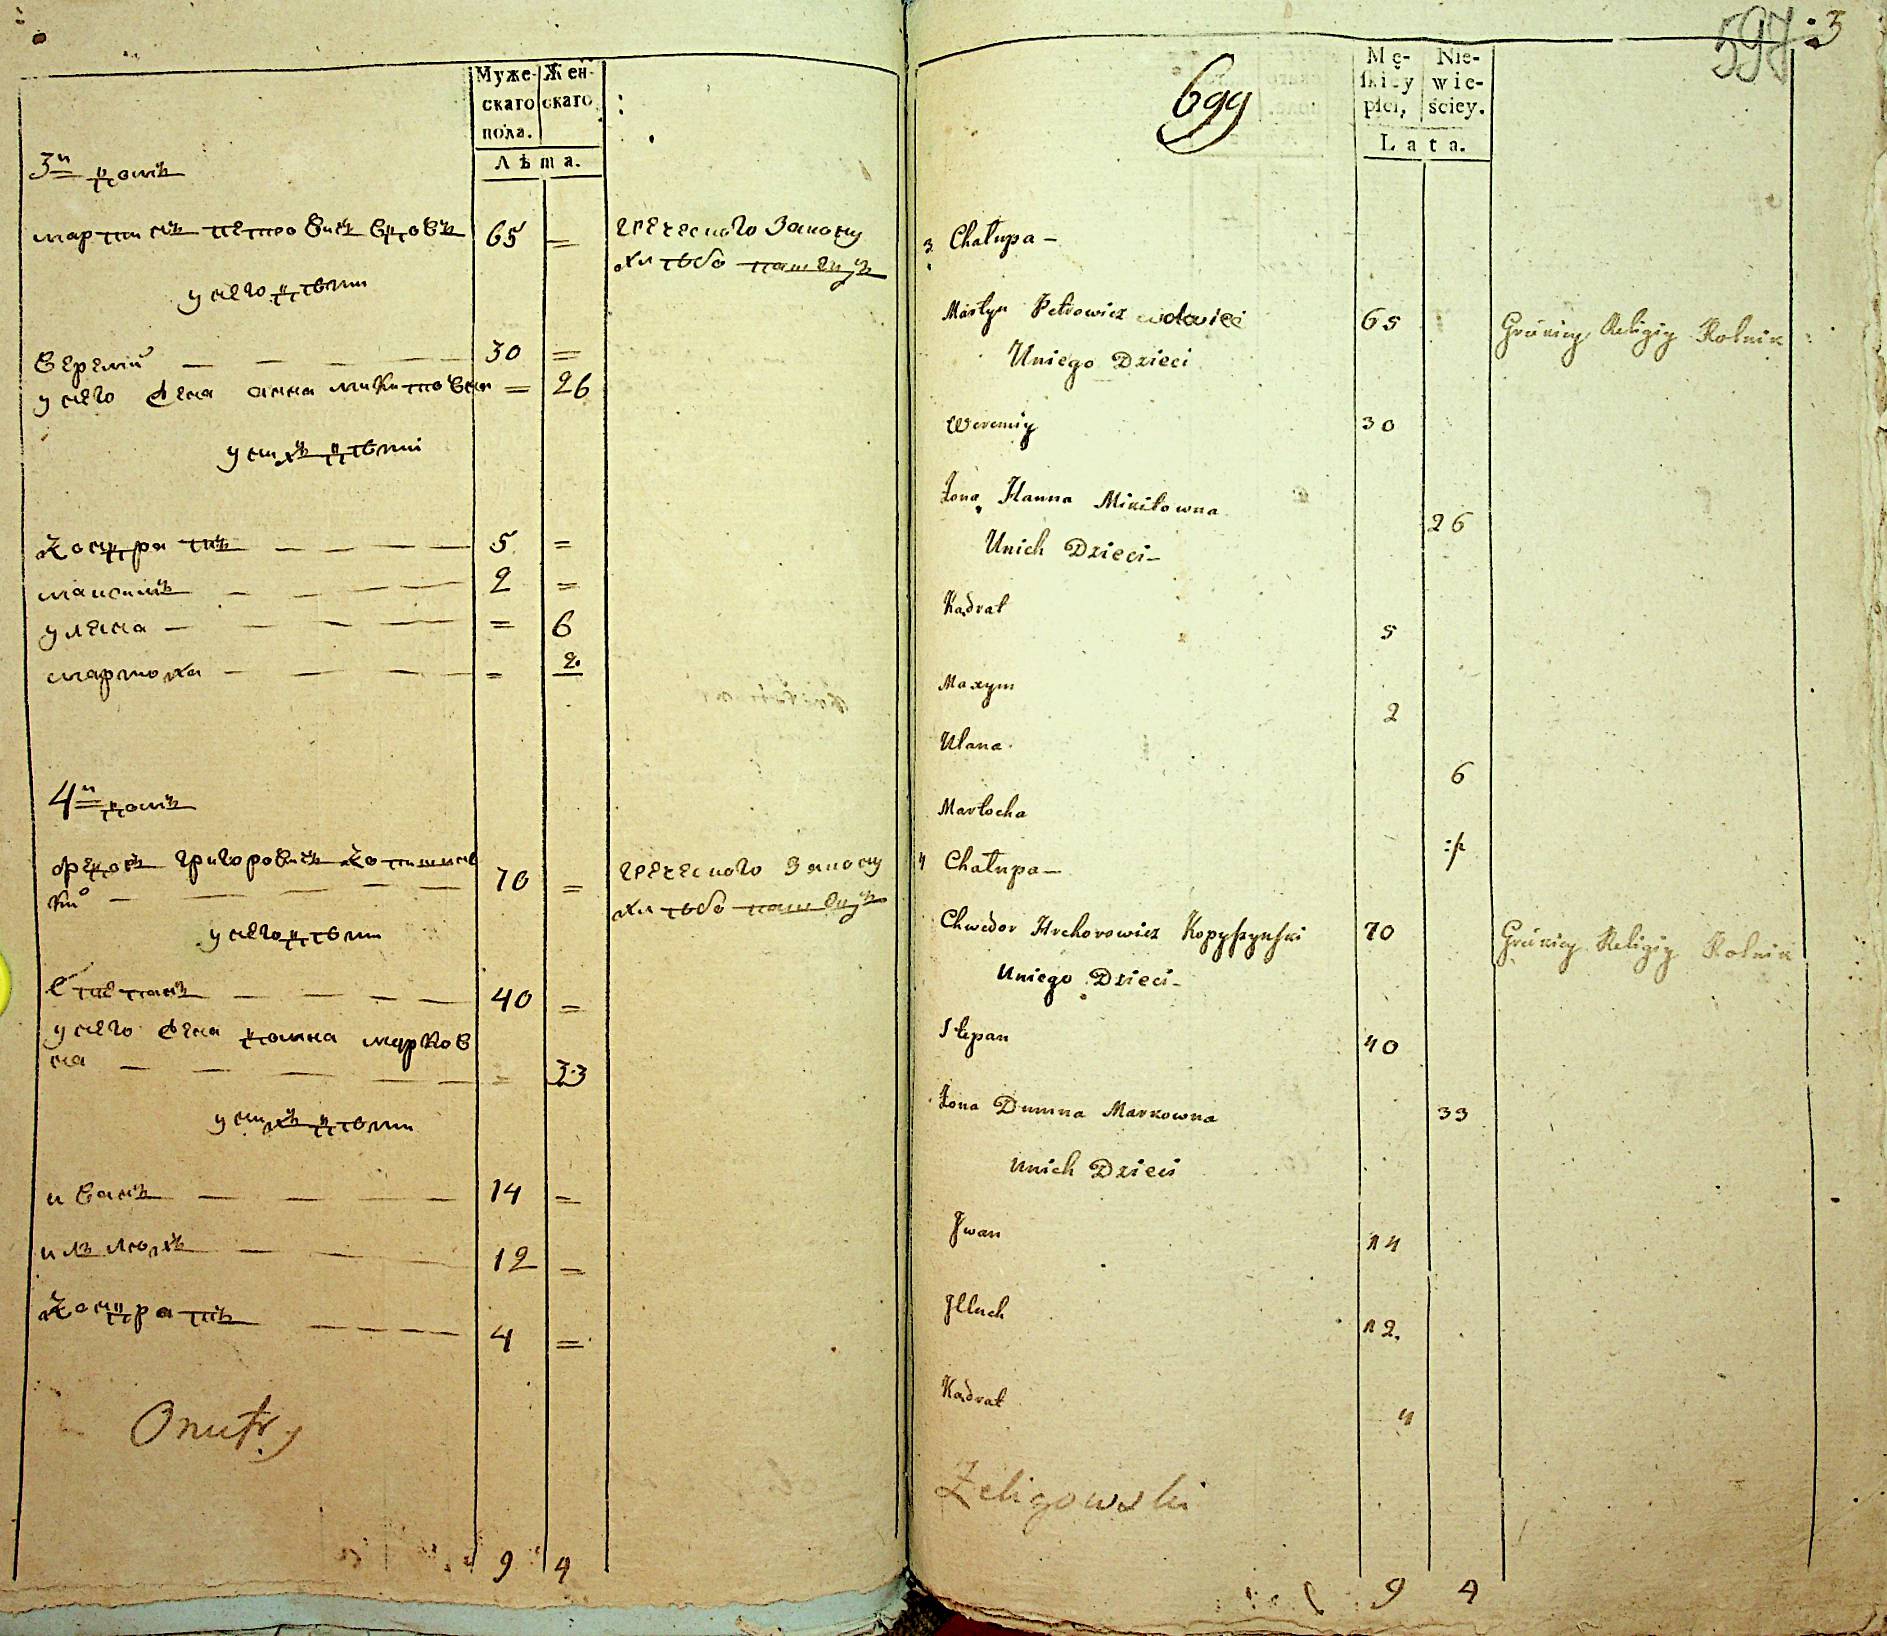 Муже-
скаго
пола.
Жен-
скаго
Лѣта.
3й домъ
мартинъ петровичъ вдовъ 65 =
греческого закону
хлѣбо пашецъ
у него дѣти
веремій — — — — 30 =
у него жена анна микитовна = 26
у нихъ дѣти
кондратъ — — — — 5 =
максимъ — — — — 2 =
улѧна — — — — = 6
мартоха — — — — = 2
4й домъ
федоръ григоровичъ
кий — — — — 70 =
греческого закону
хлѣбо пашецъ
у него дѣти
степанъ — — — — 40 =
у него жена домна марков
на — — — — = 33
у нихъ дѣти
иванъ — — — — 14 =
илъ люхъ — — — 12 =
кондратъ — — — — 4 =
Onufry
9 4
597 3
699
Mę-
skiey
płci,
Nie-
wie-
ściey.
Lata.
3. Chałupa —
Martyn Petrowicz wdowiec 65
Grückiey Religiy Rolnik
Uniego Dzieci
Weremiy 30
Żona Hanna Mikitowna 26
Unich Dzieci —
Kądrat 5
Maxym 2
Ulana 6
Martocha
4 Chałupa —
Chwedor Hrehorowicz Kopyszynski 70
Grückiey Religiy Rolnik
Uniego Dzieci —
Stepan 40
Żona Dumna Markowna 33
Unich Dzieci
Jwan 14
Jlluch 12.
Kądrat 4
Żeligowski
9 4